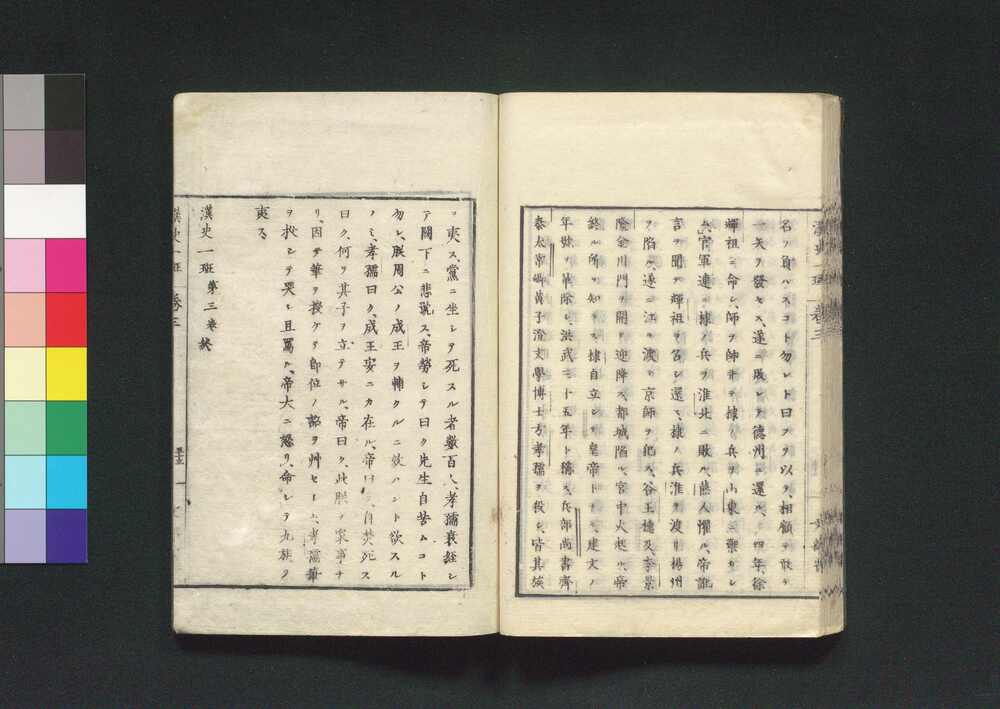 漢史一班 卷三
名ヲ負ハスコト勿レト曰フヲ以テ、相顧テ敢テ
一矢ヲ發セス、遂ニ敗レテ德州ニ還ル、四年、徐
輝祖ニ命シ、師ヲ帥ヰテ棣ノ兵ヲ山東ニ禦カシ
ム、官軍連ニ棣ノ兵ヲ淮北ニ敗ル、燕人懼ル、帝訛
言ヲ聞テ輝祖ヲ召シ還ス、棣ノ兵淮ヲ渡リ揚州
ヲ陷ル、遂ニ江ヲ渡リ京師ヲ犯ス、谷王橞及李景
隆金川門ヲ開テ迎降ス、都城陷ル、宮中火起ル、帝
終ル所ヲ知ラス、棣自立シテ皇帝トナル、建文ノ
年號ヲ革除シ、洪武三十五年ト稱ス、兵部尚書齊
泰太常卿黃子澄文學博士方孝孺ヲ殺シ、皆其族
ヲ夷ス、黨ニ坐シテ死スル者數百人、孝孺衰絰シ
テ闕下ニ悲號ス、帝勞シテ曰ク先生自苦ムコト
勿レ、朕周公ノ成王ヲ輔クルニ效ハント欲スル
ノミ、孝孺曰ク、成王安ニカ在ル、帝曰ク、自焚死ス
曰ク、何ソ其子ヲ立テサル、帝曰ク、此朕カ家事ナ
リ、因テ筆ヲ授ケテ卽位ノ詔ヲ艸セシム、孝孺筆
ヲ投シテ哭シ且罵ル、帝大ニ怒リ、命シテ九族ヲ
夷ス
漢史一班第三卷終
漢史一班 卷三